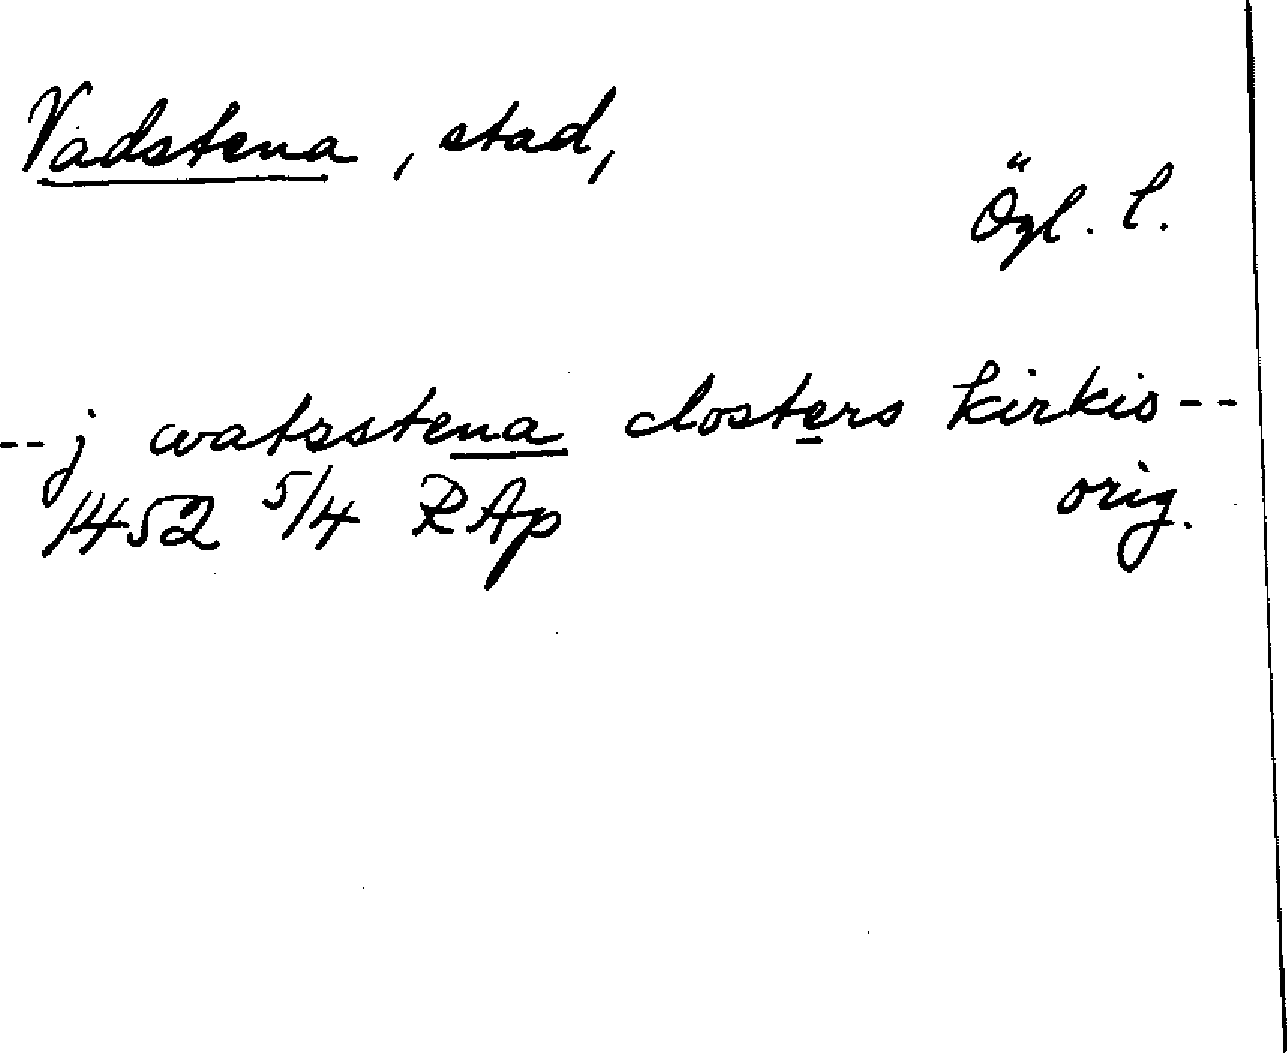 Vadstena, stad,
Ögl. l.
-- j watzstena closters kirkio --
1452 5/4 RAp orig.